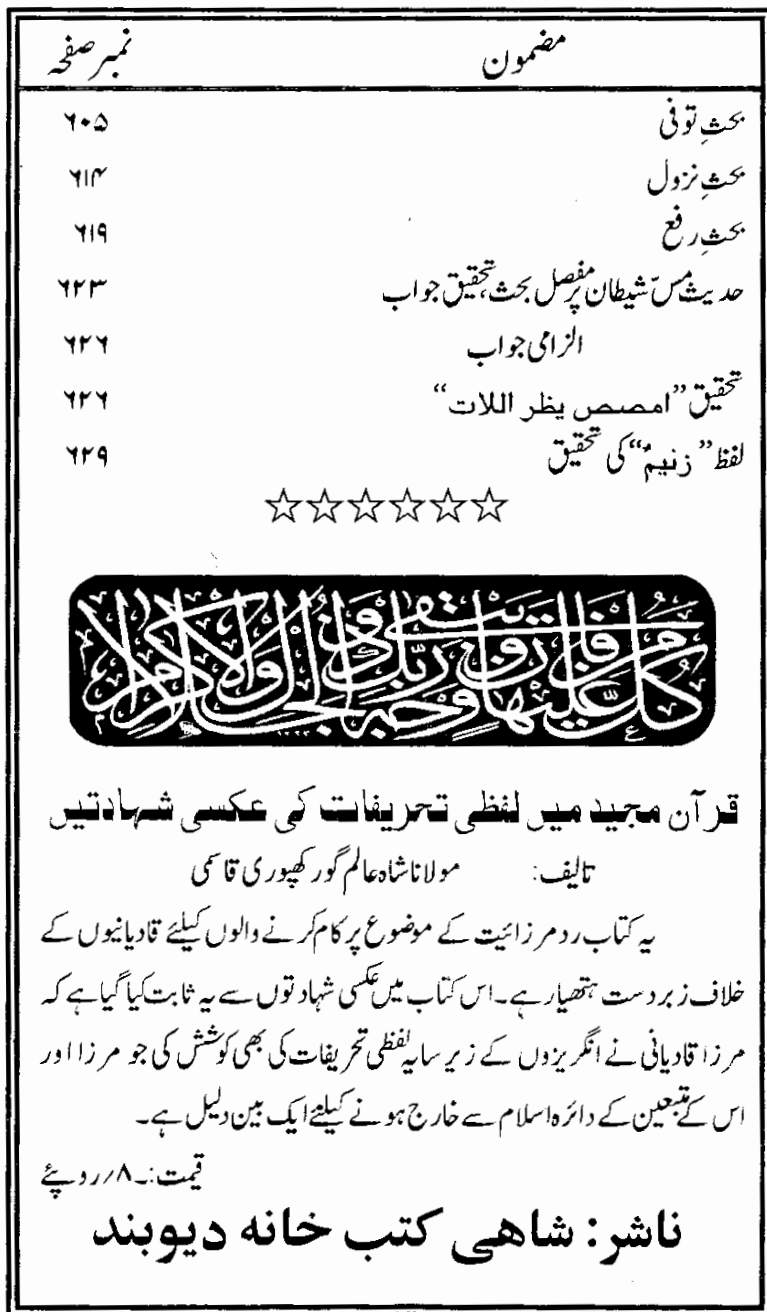 مضمون نمبر صفحہ
بحثِ توفی ۶۰۵
بحثِ نزول ۶۱۴
بحثِ رفع ۶۱۹
حدیث مسّ شیطان پر مفصل بحث، تحقیق جواب ۶۲۳
الزامی جواب ۶۲۶
تحقیق ”امصص یظر اللات“ ۶۲۶
لفظ ”زنیمٌ“ کی تحقیق ۶۲۹
☆☆☆☆☆☆
كُلُّ مَنْ عَلَيْهَا فَانٍ وَيَبْقَى وَجْهُ رَبِّكَ ذُو الْجَلَالِ وَالْإِكْرَامِ
قرآن مجید میں لفظی تحریفات کی عکسی شہادتیں
تالیف: مولانا شاہ عالم گورکھپوری قاسمی
یہ کتاب رد مرزائیت کے موضوع پر کام کرنے والوں کیلئے قادیانیوں کے
خلاف زبردست ہتھیار ہے۔ اس کتاب میں عکسی شہادتوں سے یہ ثابت کیا گیا ہے کہ
مرزا قادیانی نے انگریزوں کے زیر سایہ لفظی تحریفات کی بھی کوشش کی جو مرزا اور
اس کے متبعین کے دائرہ اسلام سے خارج ہونے کیلئے ایک بین دلیل ہے۔
قیمت:۔۸/روپئے
ناشر: شاھی کتب خانہ دیوبند